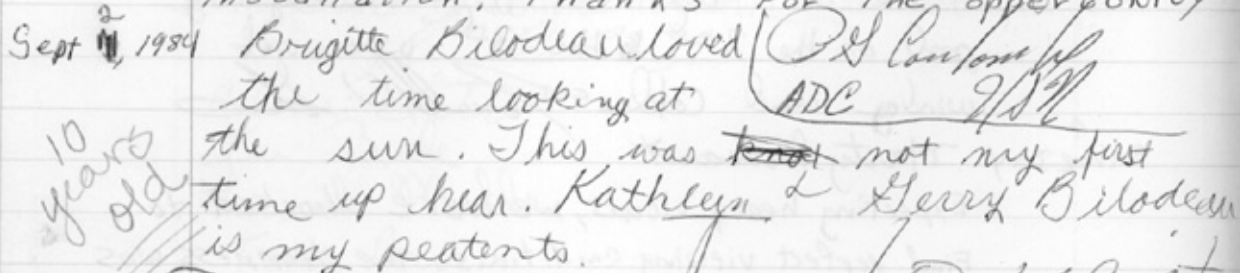 Thanks for the opportunity
Sept 2, 1984 Brigitte Bilodeau loved
the time looking at ADC
the sun. This was not my first
time up hear. Kathleyn & Gerry Bilodeau
is my peatents.
10
years
old